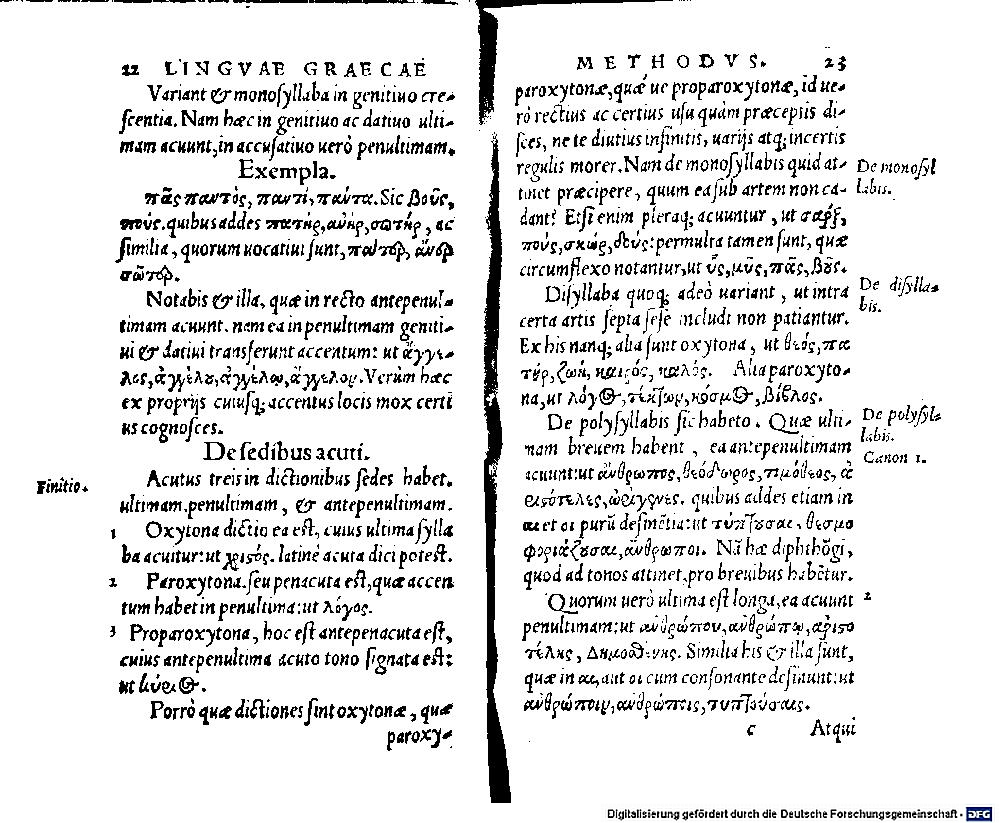 22 LINGVAE GRAECAE
Variant & monosyllaba in genitiuo cre-
scentia. Nam hæc in genitiuo ac datiuo ulti-
mam acuunt, in accusatiuo uerò penultimam.
Exempla.
πᾶς παντός, παντί, πάντα. Sic βοῦς,
πούς. quibus addes πατήρ, ἀνήρ, σωτήρ, ac
similia, quorum uocatiui sunt, πάτερ, ἄνερ
σῶτερ.
Notabis & illa, quæ in recto antepenul-
timam acuunt. nam ea in penultimam geniti-
ui & datiui transferunt accentum: ut ἄγγε-
λος, ἀγγέλου, ἀγγέλῳ, ἄγγελον. Verùm hæc
ex proprijs cuiusq; accentus locis mox certi
us cognosces.
De sedibus acuti.
Finitio.
Acutus treis in dictionibus sedes habet.
ultimam, penultimam, & antepenultimam.
1 Oxytona dictio ea est, cuius ultima sylla
ba acuitur: ut χριστός. latinè acuta dici potest.
2 Paroxytona, seu penacuta est, quæ accen
tum habet in penultima: ut λόγος.
3 Proparoxytona, hoc est antepenacuta est,
cuius antepenultima acuto tono signata est:
ut κύριος.
Porrò quæ dictiones sint oxytonæ, quæ
paroxy-
METHODVS. 23
paroxytonæ, quæ ue proparoxytonæ, id ue-
rò rectius ac certius usu quàm præceptis di-
sces, ne te diutius infinitis, uarijs atq; incertis
regulis morer. Nam de monosyllabis quid at-
tinet præcipere, quum ea sub artem non ca-
dant? Etsi enim pleraq; acuuntur, ut σαρξ,
πούς, σκώρ, δούς: permulta tamen sunt, quæ
circumflexo notantur, ut ὗς, μῦς, πᾶς, βοῦς.
De monosyl
labis.
Disyllaba quoq; adeò uariant, ut intra
certa artis septa sese includi non patiantur.
Ex his nanq; alia sunt oxytona, ut θεός, πα
τήρ, ζωή, καιρός, καλός. Alia paroxyto-
na, ut λόγος, τέκτων, κόσμος, βίβλος.
De disylla-
bis.
De polysyllabis sic habeto. Quæ ulti-
mam breuem habent, ea antepenultimam
acuunt: ut ἄνθρωπος, θεόδωρος, τιμόθεος, ἀ
ριστότελες, ὠριγένες. quibus addes etiam in
αι et οι purū desinētia: ut τύπτουσαι, θεσμο
φοριάζουσαι, ἄνθρωποι. Nā hæ diphthōgi,
quod ad tonos attinet, pro breuibus habētur.
De polysyl-
labis.
Canon 1.
Quorum uerò ultima est longa, ea acuunt 2
penultimam: ut ἀνθρώπου, ἀνθρώπῳ, ἀριστο
τέλης, Δημοσθένης. Similia his & illa sunt,
quæ in αι, aut οι cum consonante desinunt: ut
ἀνθρώποιν, ἀνθρώποις, τυπτούσαις.
c Atqui
Digitalisierung gefördert durch die Deutsche Forschungsgemeinschaft - DFG